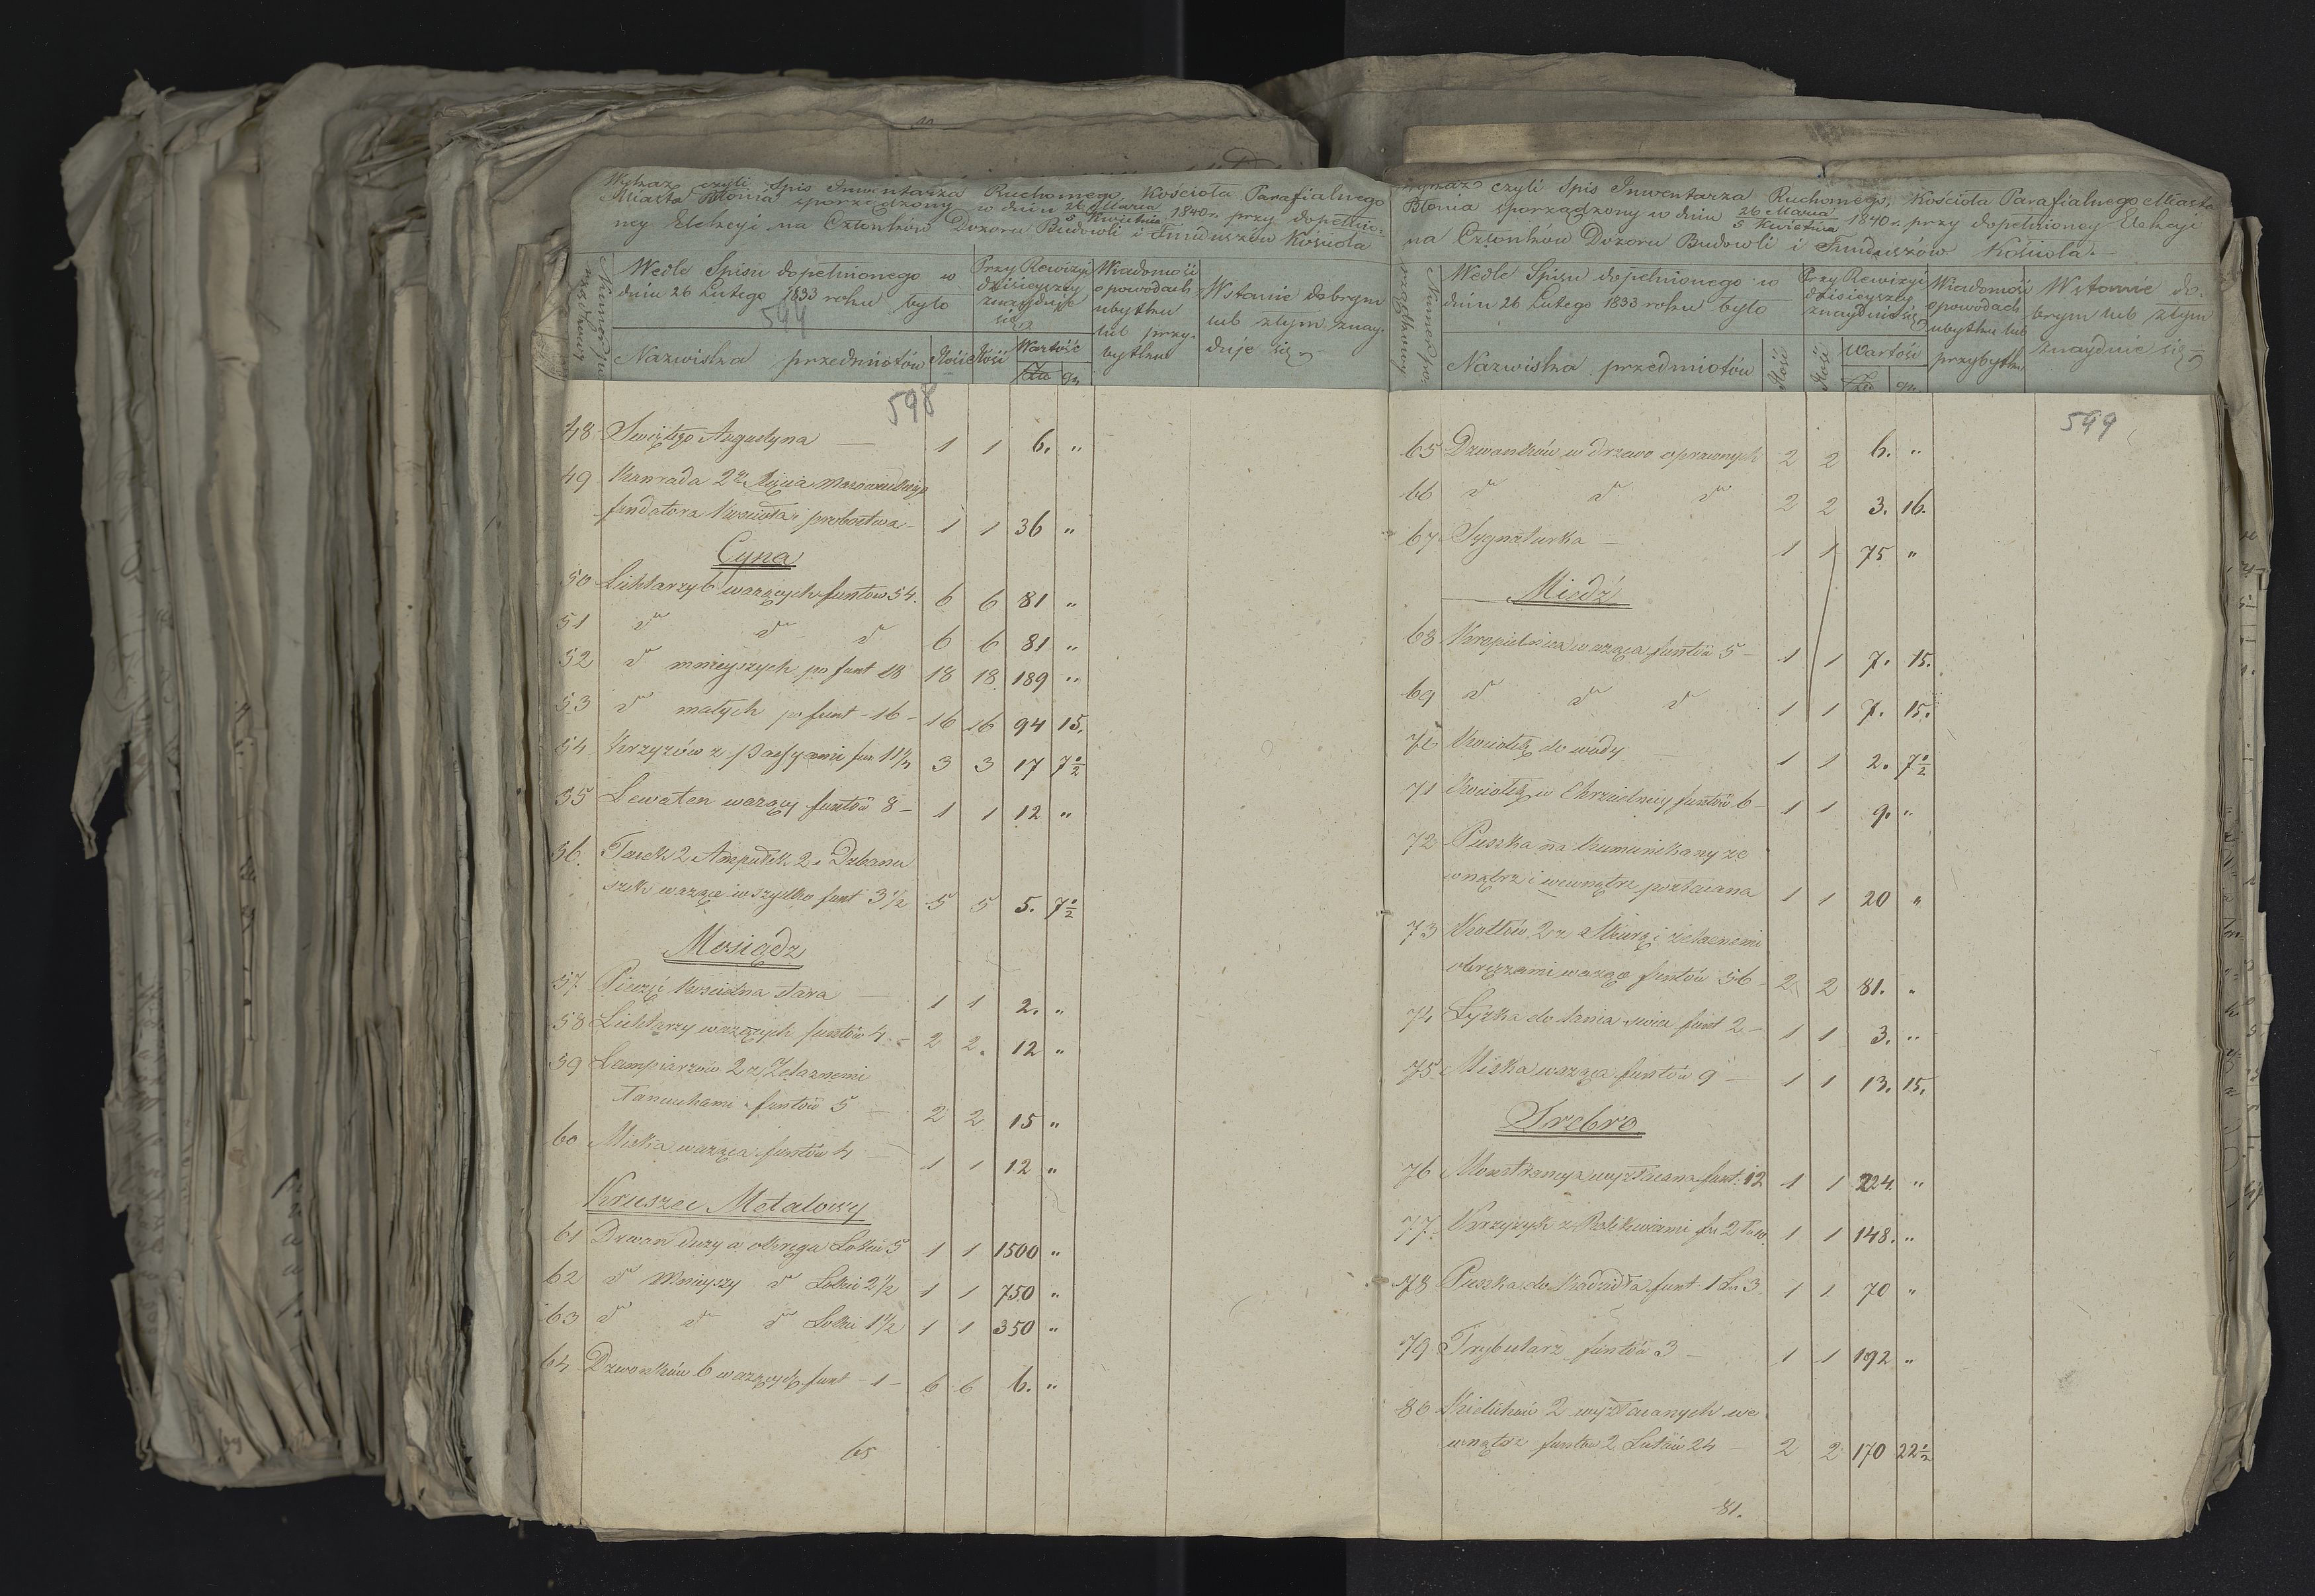 Wykaz czyli Spis Inwentarza Ruchomego Kościoła Parafialnego
Miasta Błonia sporządzony w dniu 26 Marca / 5 Kwietnia 1840 r. przy dopełnio-
ney Elekcyi na Członków Dozoru Budowli i Funduszów Kościoła
Numer porządkowy
Wedle Spisu dopełnionego w
dniu 26 Lutego 1833 roku było
544
Nazwiska przedmiotów
Ilość
Przy Rewizyi
dzisieyszey
znayduje
się
Ilość
Wartość
Złu gr.
Wiadomość
o powodach
ubytku
lub przy-
bytku
W stanie dobrym
lub złym znay-
duje się
598
48 Swiętego Augustyna — 1 1 6. "
49 Konrada 2go Xięcia Mazowieckiego
fundatora Kościoła i probostwa - 1 1 36 "
Cyna
50 Lichtarzy 6 ważących funtów 54. 6 6 81 "
51 do do do 6 6 81 "
52 do mnieyszych po funt 18 18 18 189 "
53 do małych po funt - 16 - 16 16 94 15.
54 Krzyżów z passyami fun 11 1/2 3 3 17 7 1/2
55 Lewaten ważący funtów 8 - 1 1 12 "
56. Tacek 2 Ampułek 2 i Dzbanu
szek ważące wszystko funt 3 1/2 5 5 5. 7 1/2
Mosiądz
57 Pieczęć Kościelna stara — 1 1 2. "
58 Lichtarzy ważących funtów 4 - 2 2. 12 "
59 Lampiarzów 2 z Żelaznemi
Łancuchami funtów 5 — 2 2 15 "
60 Miska ważąca funtów 4 — 1 1 12 "
Kruszec Metalowy
61 Dzwon duży a okręgu Łokci 5 1 1 1500 "
62 do Mnieyszy do Łokci 2 1/2 1 1 750 "
63 do do do Łokci 1 1/2 1 1 350 "
64 Dzwonków 6 ważących funt - 1 - 6 6 6. "
65
Wykaz czyli Spis Inwentarza Ruchomego, Kościoła Parafialnego Miasta
Błonia sporządzony w dniu 26 Marca / 5 Kwietnia 1840 r. przy dopełnioney Elekcyi
na Członków Dozoru Budowli i Funduszów Kościoła.-
Numer porządkowy
Wedle Spisu dopełnionego w
dniu 26 Lutego 1833 roku było
Nazwiska przedmiotów
Ilość
Przy Rewizyi
dzisieyszey
znayduie się
Ilość
Wartość
Złu gr.
Wiadomość
o powodach
ubytku lub
przybytku
W stanie do-
brym lub złym
znayduie się
599
65 Dzwonków w drzewo oprawnych 2 2 6. "
66 do do do 2 2 3. 16.
67 Sygnaturka — 1 1 75 "
Miedź
68 Kropielnica ważąca funtów 5 - 1 1 7. 15.
69 do do do 1 1 7. 15.
70 Kociołek do wody — 1 1 2. 7 1/2
71 Kociołek w Chrzcielnicy funtów 6 - 1 1 9. "
72 Puszka na Kumunikany ze
wnątrz i wewnątrz pozłacana 1 1 20 "
73 Kotłów 2 z Skurą i żelaznemi
obręczami ważące funtów 56 - 2 2 81. "
74 Łyżka do lania swiec funt 2 - 1 1 3. "
75 Miska ważąca funtów 9 — 1 1 13. 15.
Srebro.
76 Monstrancya wyzłacana funt. 12 1 1 224. "
77 Krzyżyk z Relikwiami fu 2 1 1 148. "
78 Puszka do Kadzidła funt 1 Łu 3 1 1 70 "
79 Trybularz funtów 3 — 1 1 192 "
80 Kielichów 2 wyzłacanych we
wnątrz funtów 2 Łutów 24 — 2 2 170 22 1/2
81.